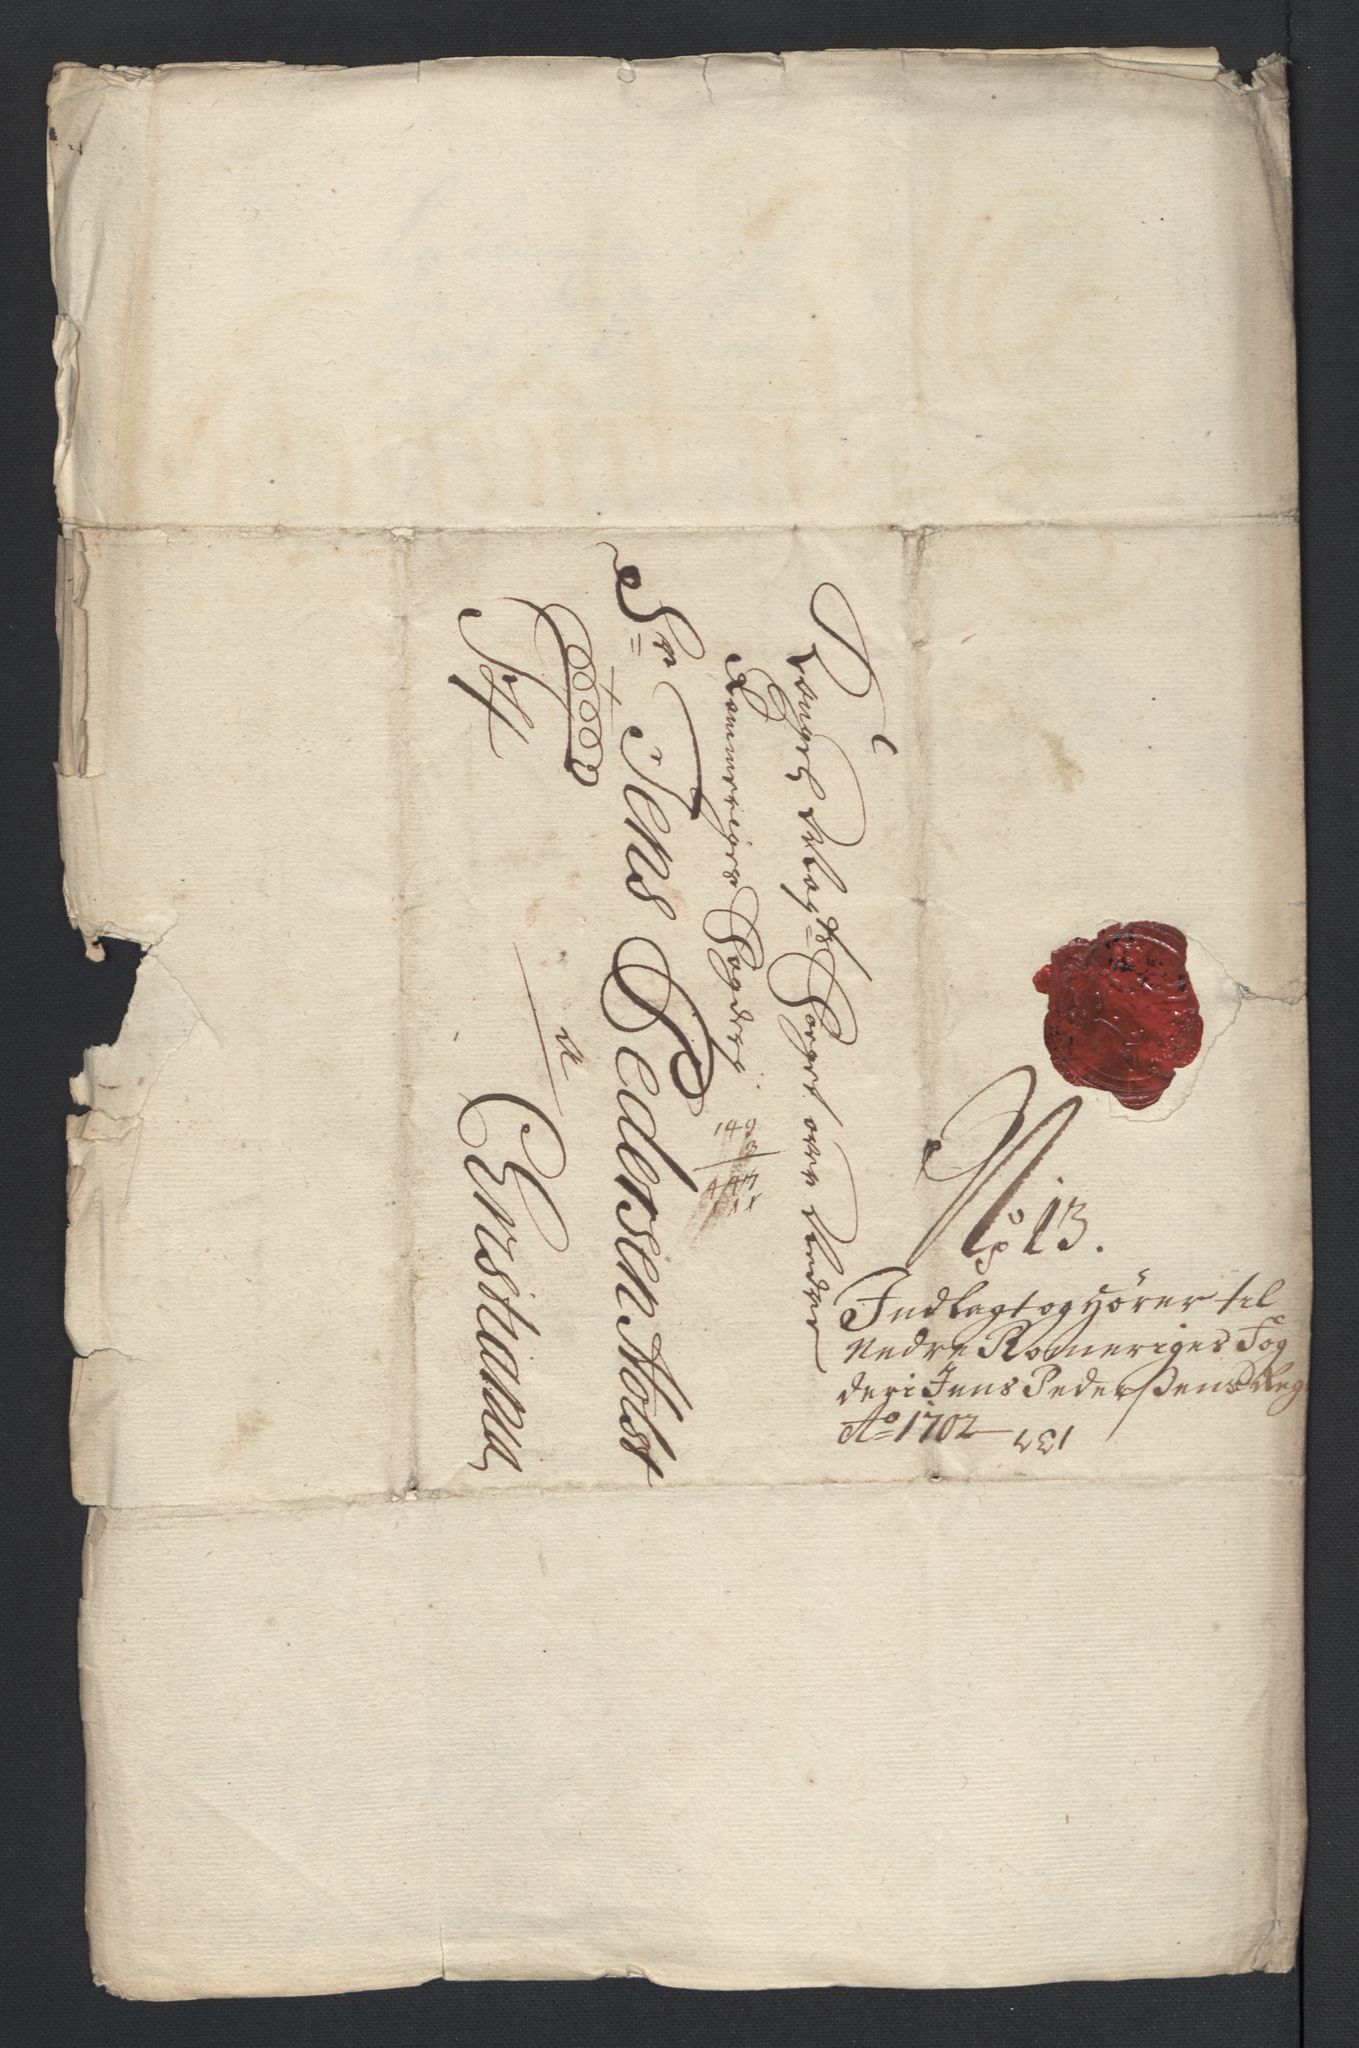 Kongel: Maÿts: Foget over Nedre
Rommeriges Fogderj.
Sr: Jens Pedersen Holst
a
Christiania
149
3
No 13.
Indlagt og Hører til
Nedre Romeriges Fog
deri Jens Pedersens Reg
Ao 1702